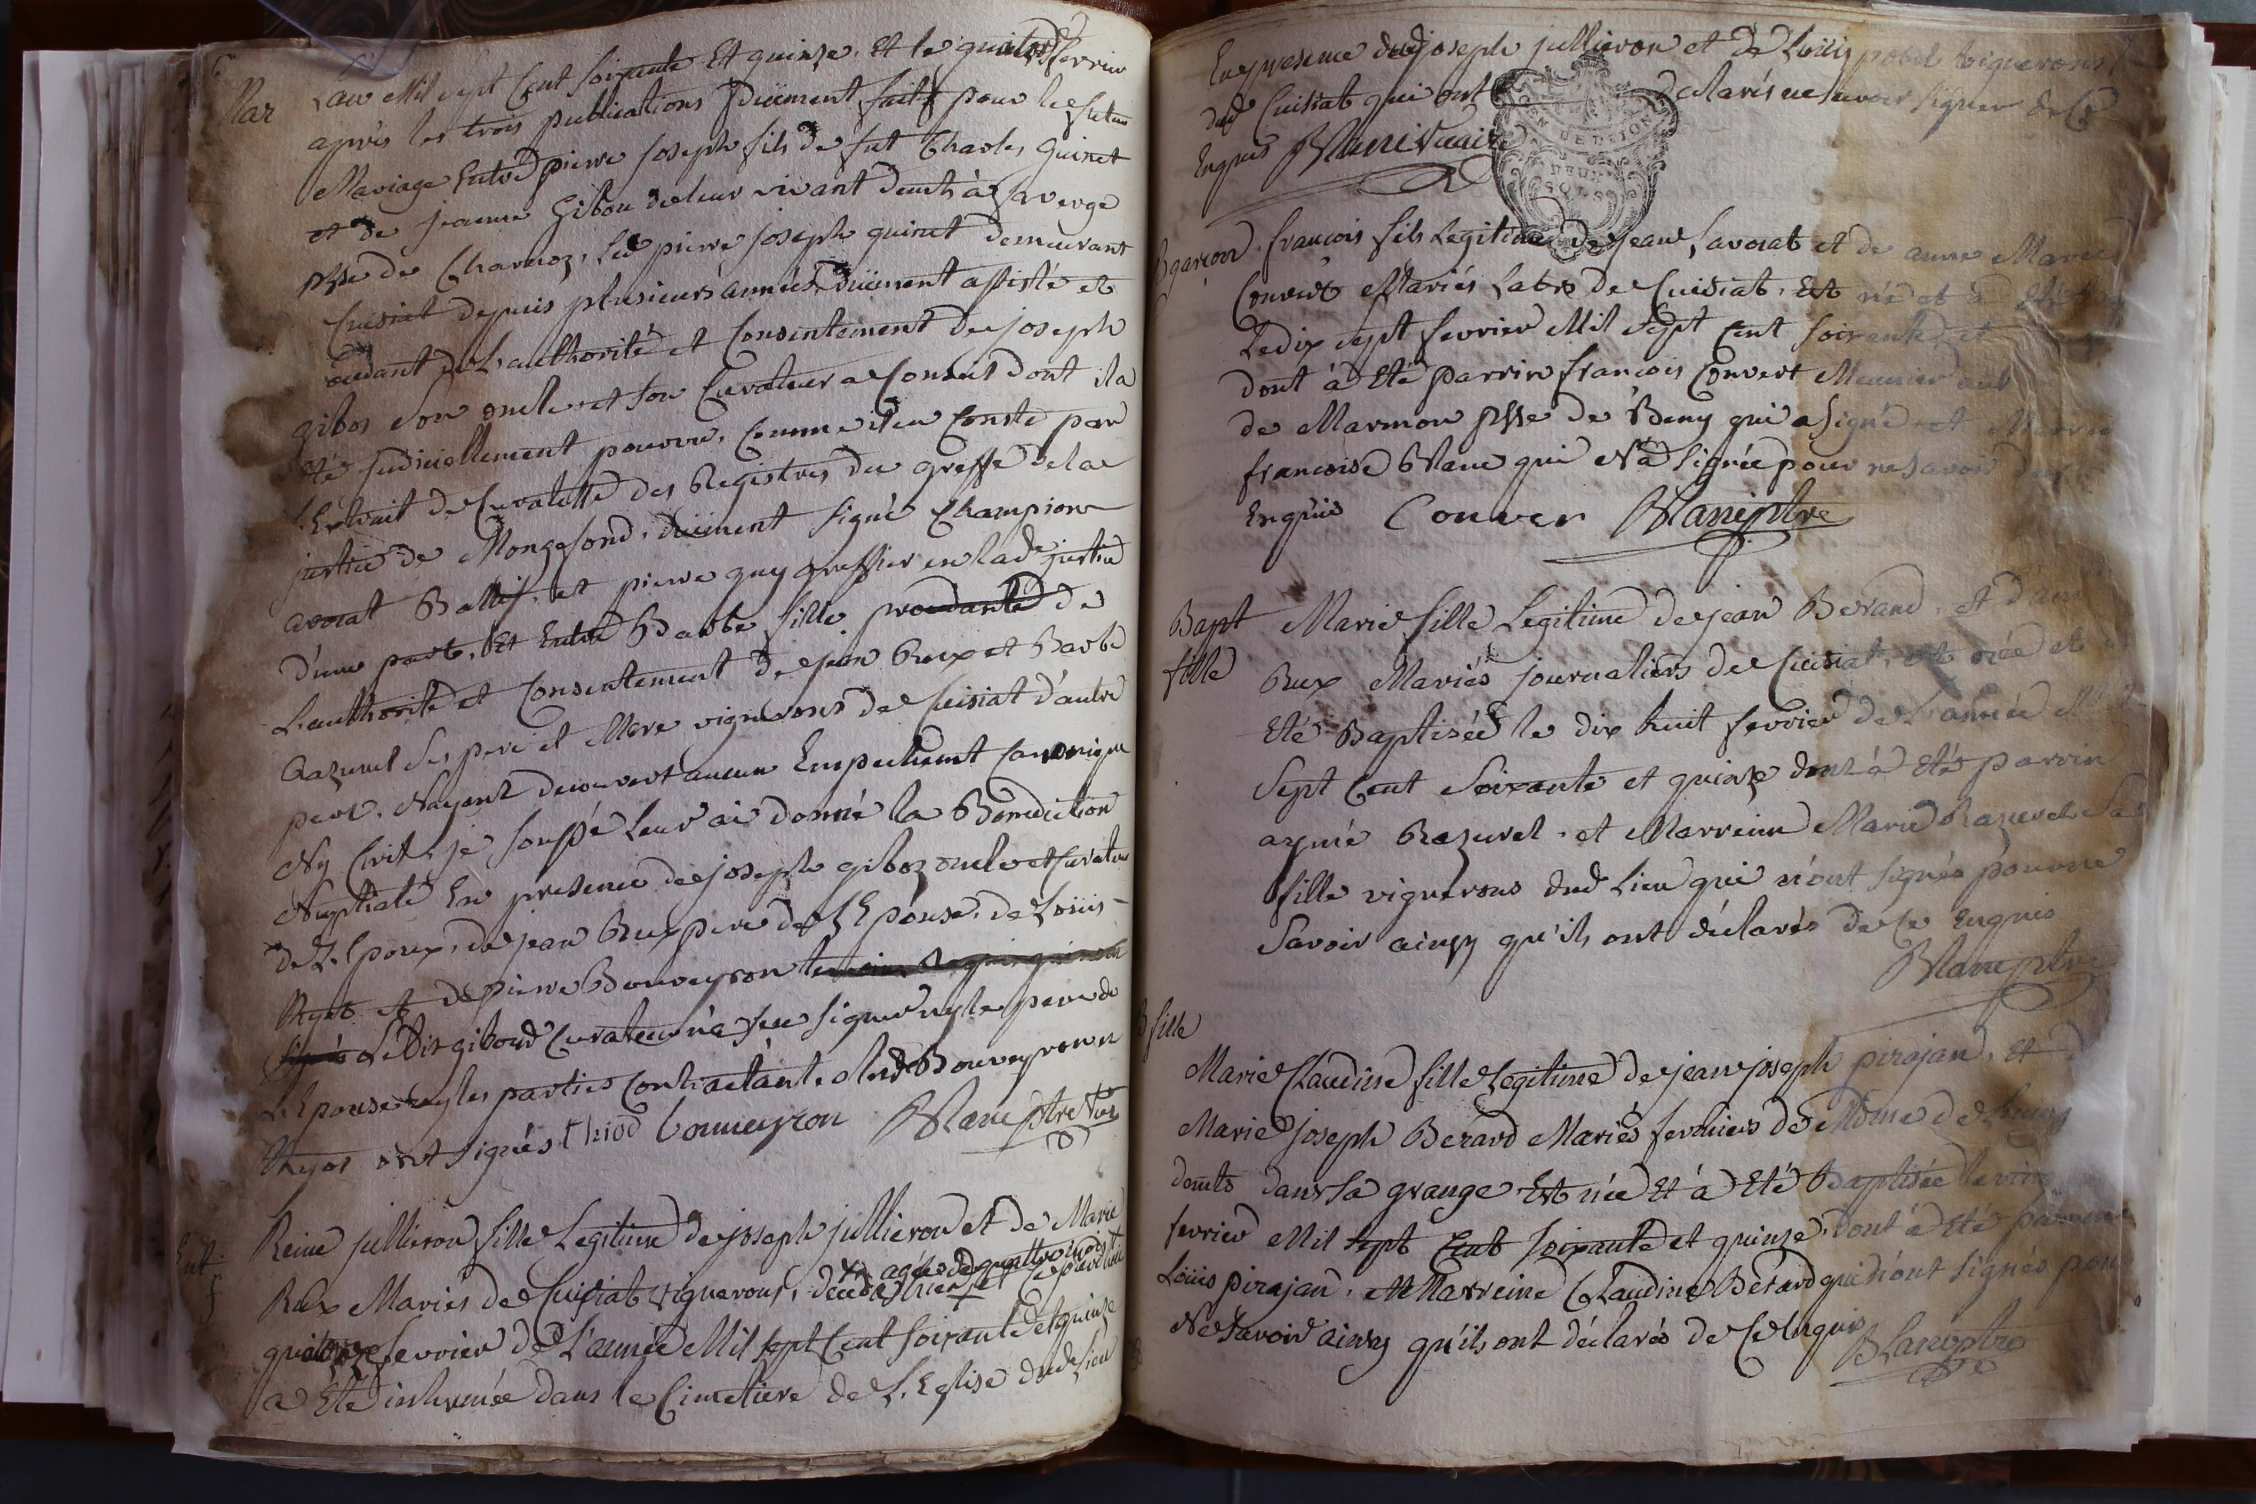 Mar
L'an Mil sept Cent soixante Et quinze, Et le fevrier
après les trois publications düement faites pour le futur
Mariage Entre pierre joseph fils de fut Charles Guinet
et de jeanne Gibou de leur vivant demts à
psse de Charnoz, led pierre joseph guinet demeurant
Cuisiat depuis plusieurs années, düement assisté et
de L'authorité et Consentement de joseph
gibos son oncle et son Curateur a Conseil dont il a
été judiciellement pourvu, Comme il en Conste par
L'Extrait de Curatelle des Registres du greffe de la
justice de Mongefond, düement signé Champion
avocat Ballif, et pierre guy greffier en lade justice
d'une part, Et Entre Barbe fille procedante de
L'authorité et Consentement de jean Rux et Barbe
Razurel ses pere et Mere vignerons de Cuisiat d'autre
part. N'ayant decouvert aucun Empechemt Canonique
Ny Civil, je soussé Leur ai donné la Benediction
Nuptiale En presence de joseph giboz oncle et Curateur
de L'Epoux, de jean Rux pere de L'Epouse, de Loüis
et de pierre Bouveyron
Ledit giboud Curateur n'a sçu signer ny le pere de
L'Epouse ny les parties Contractant. led Bouveyron
ont signés thiod bouveyron Blanc ptre vic
Ent
f
Reine jullieron fille Legitime de joseph jullieron et de Marie
Rux Mariés de Cuisiat vignerons, decedé agée de quattre mois
quatorze fevrier de L'année Mil sept Cent soixante et quinze
a Eté inhumée dans le Cimetiere de L'Eglise dud Lieu
En presence dud joseph jullieron et de Loüis vignerons
dud Cuisiat qui ont declarés ne savoir signer de Ce
Enquis Blanc Vicaire
GEN DE DIJON
DEUX SOLS
B garçon
françois fils Legitime de jean Lavocat et de anne Marie
Convert Mariés Labrs de Cuisiat, Est né et a Eté
Le dix sept fevrier Mil sept Cent soixante et
dont à Eté parrin françois Convert Meunier
de Marmon psse de Beny qui a signé et Marreine
francoise Blanc qui N'a signée pour ne savoir de ce
Enquis Conver Blanc ptre
Bapt
fille
Marie fille Legitime de jean Berand, et d'
Rux Mariés journaliers de Cuisiat, est née et a
Eté Baptisée le dix huit fevrier de L'année Mil
Sept Cent Soixante et quinze dont à Eté parrin
aymé Razurel, et Marreine Marie Razurel Sa
fille vignerons dud Lieu qui n'ont signés pour ne
Savoir ainsy qu'ils ont déclarés de Ce Enquis
Blanc ptre
B fille
Marie Claudine fille Legitime de jean joseph pirajan, Et de
Marie joseph Bérard Mariés fermiers de Mdme de
demts dans sa grange Est née Et à Eté Baptisée le
fevrier Mil sept Cent soixante et quinze, dont à Eté parrein
Loüis pirajan, et Marreine Claudine Bérard qui n'ont signés pour
Ne savoir ainsy qu'ils ont déclarés de Ce Enquis
Blanc ptre